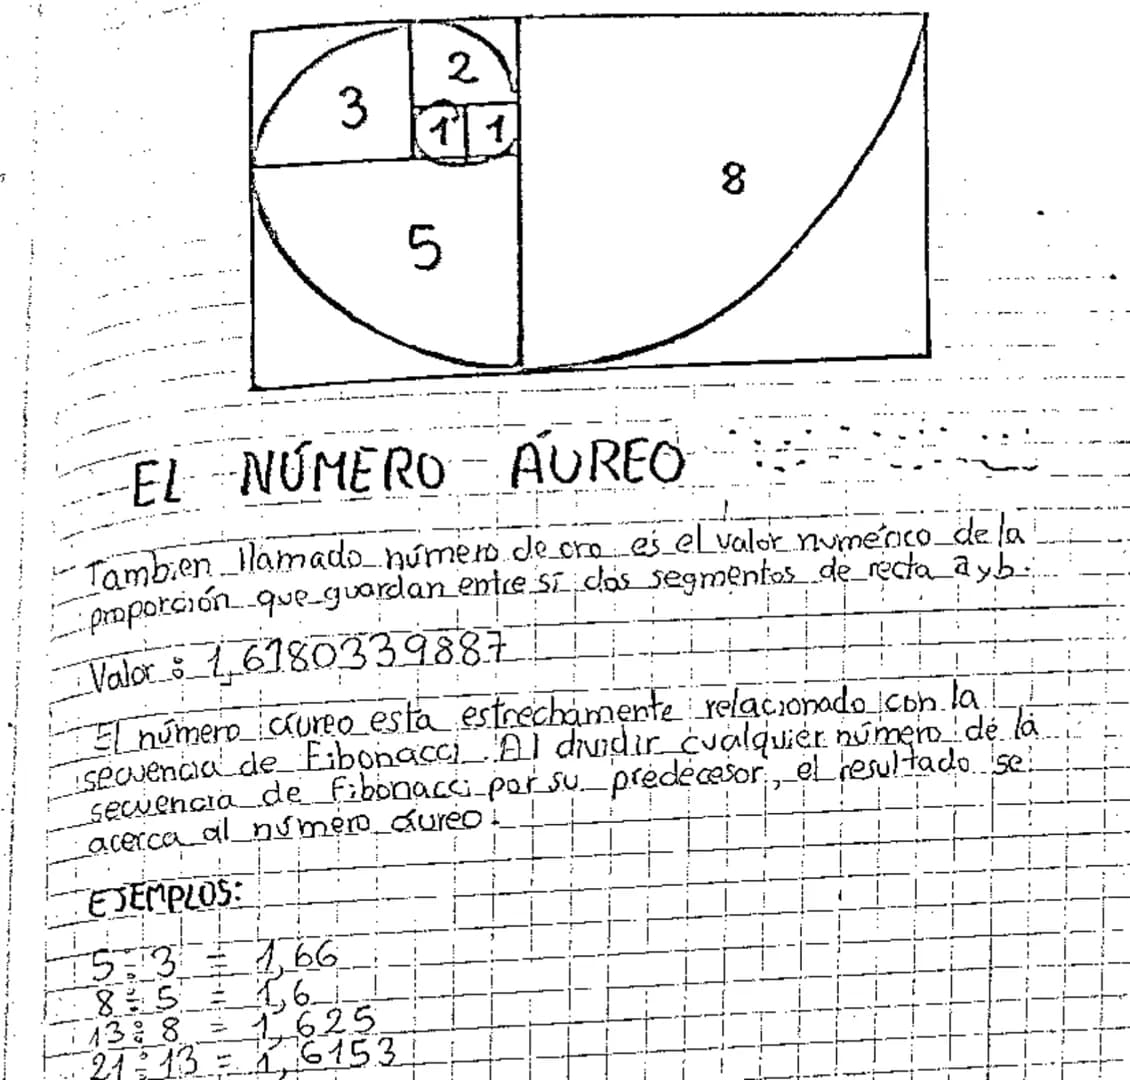 3 2
1 1
8
5
EL NÚMERO ÁUREO
Tambien llamado número de oro es el valor numérico de la
proporción que guardan entre sí dos segmentos de recta a y b.
Valor: 1,6180339887
El número áureo esta estrechamente relacionado con la
secuencia de Fibonacci. Al dividir cualquier número de la
secuencia de Fibonacci por su predecesor, el resultado se
acerca al número áureo.
EJEMPLOS:
5÷3 = 1,66
8÷5 = 1,6
13÷8 = 1,625
21÷13 = 1,6153